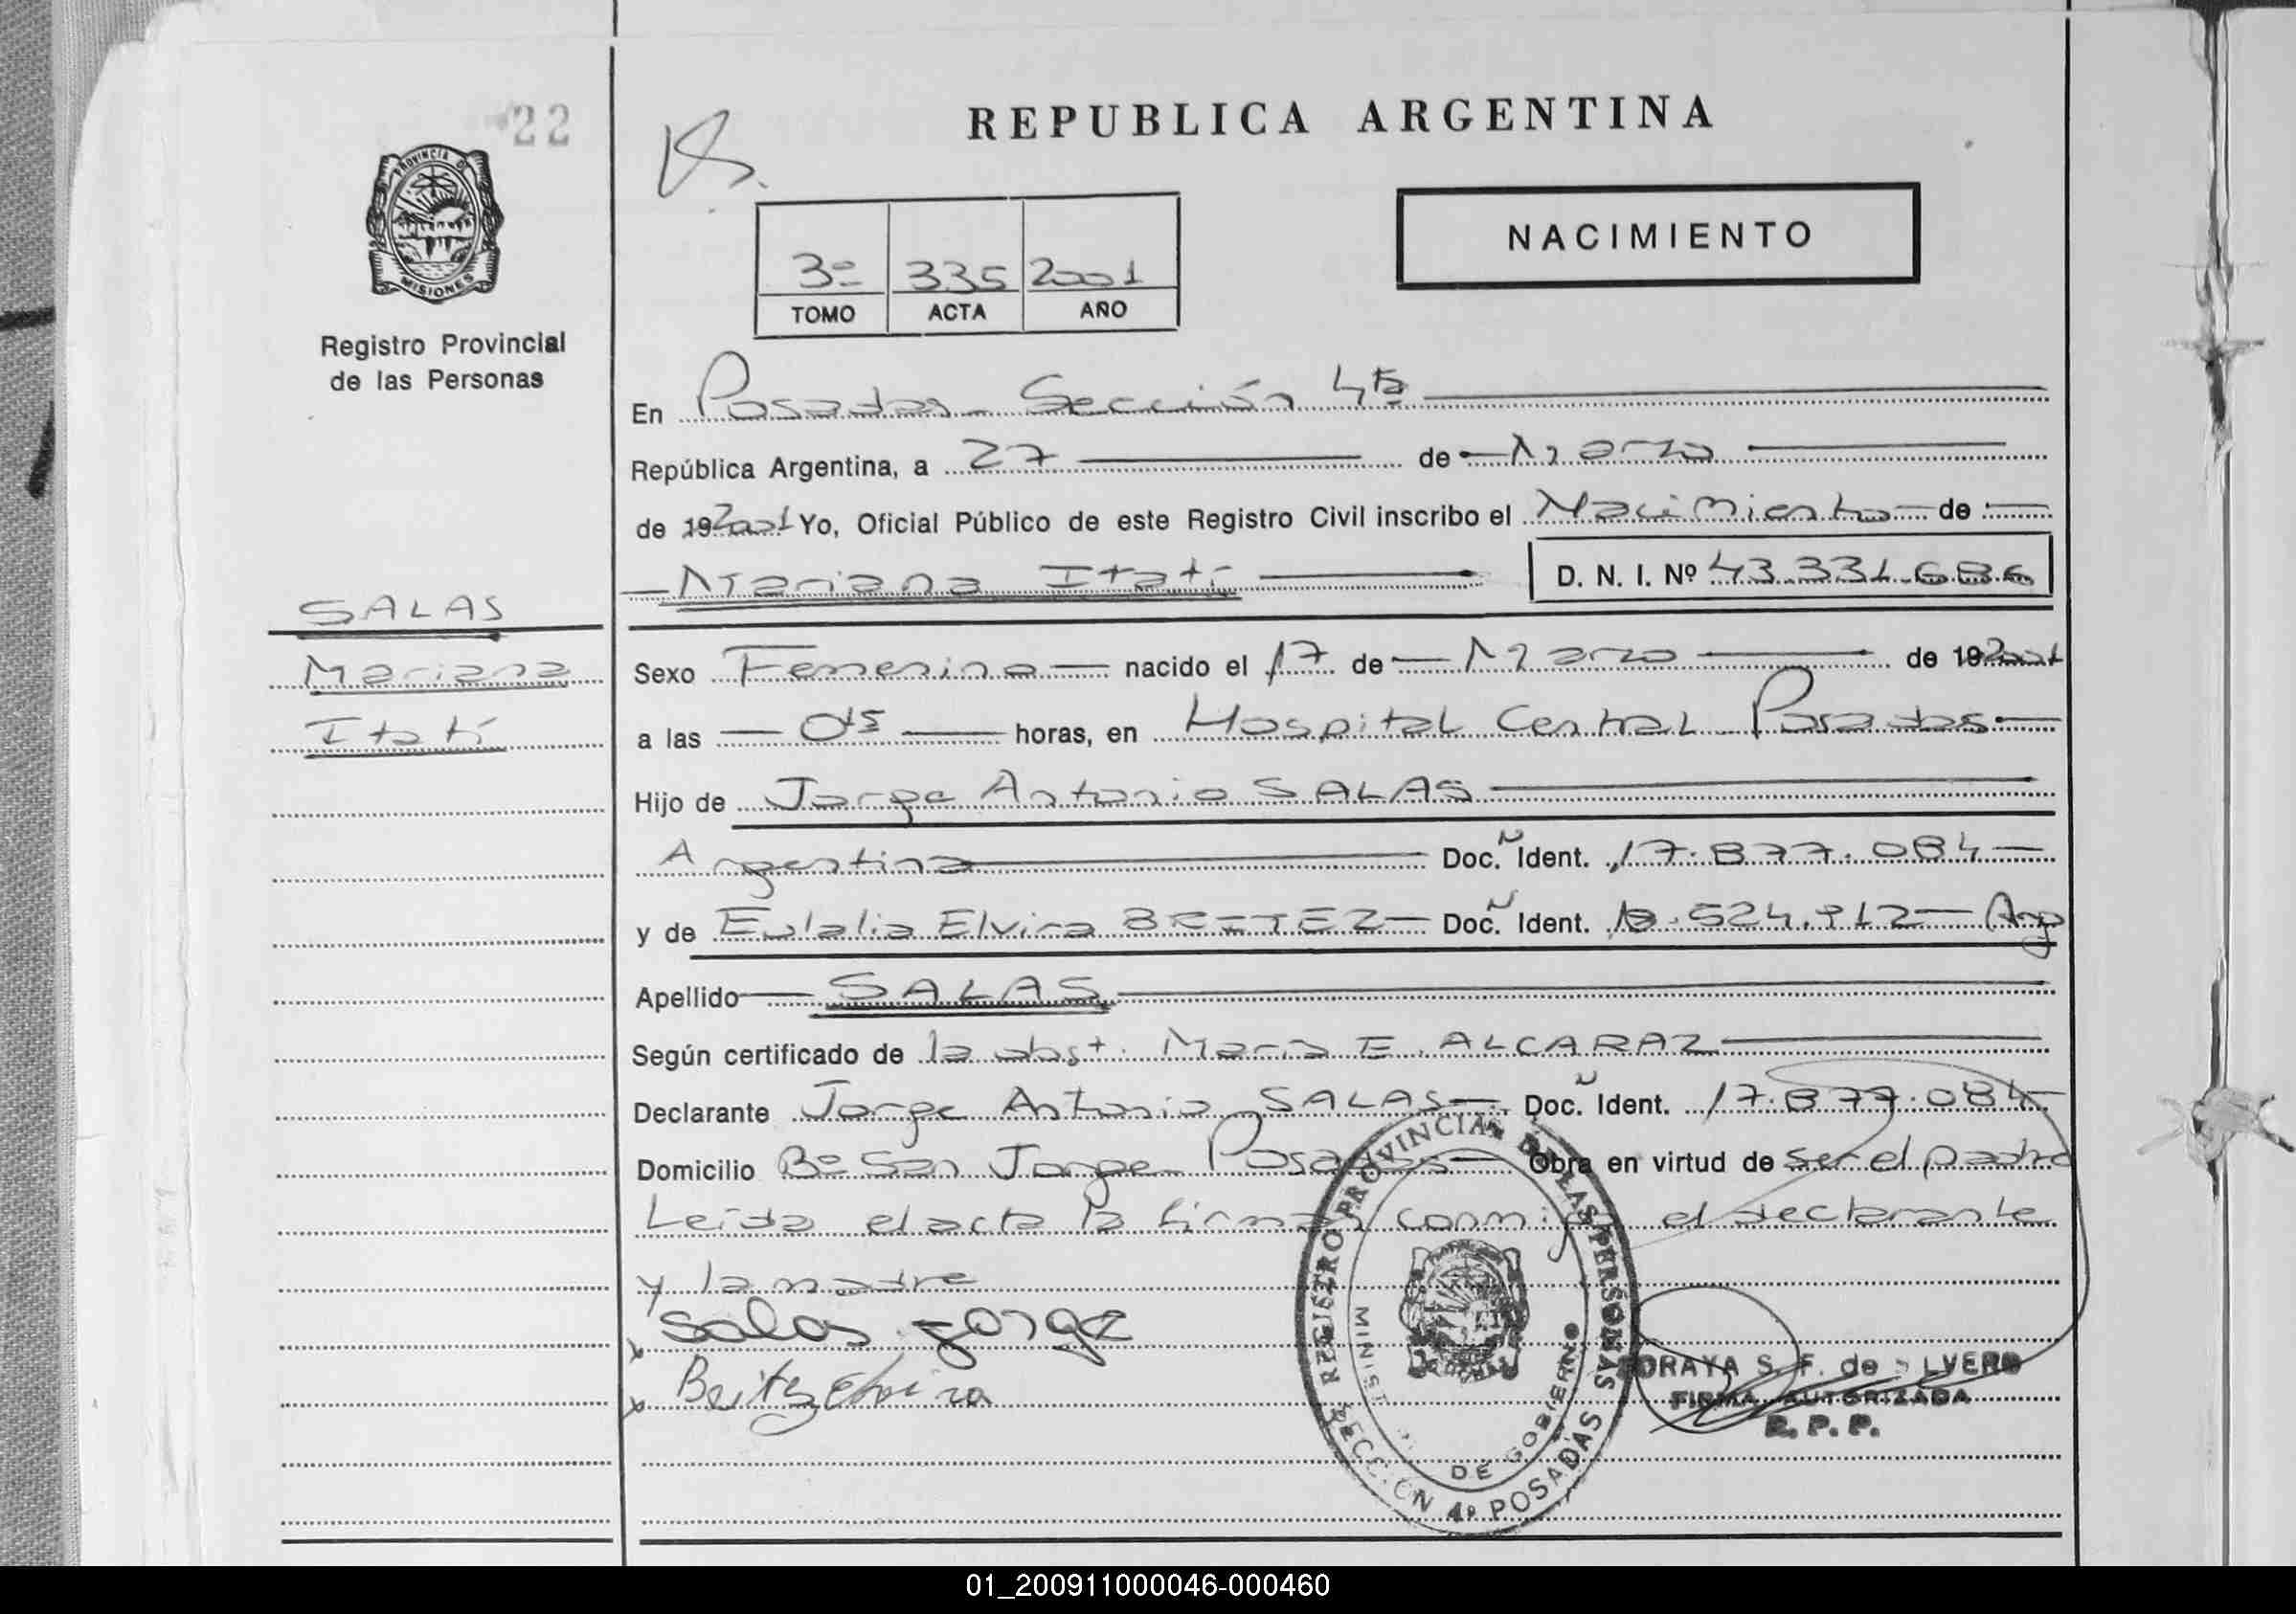 22
REPUBLICA ARGENTINA
PROVINCIA DE
MISIONES
NACIMIENTO
3º 335 2001
TOMO ACTA AÑO
Registro Provincial
de las Personas
En Posadas - Sección 4ta
República Argentina, a 27 de Marzo
de 192001 Yo, Oficial Público de este Registro Civil inscribo el Nacimiento de
Mariana Itatí D. N. I. Nº 43.331.686
SALAS
Mariana
Itatí
Sexo Femenino nacido el 17 de Marzo de 192001
a las 015 horas, en Hospital Central Posadas.
Hijo de Jorge Antonio SALAS
Argentina Doc. Ident. 17.877.084
y de Eulalia Elvira BRITEZ Doc. Ident. 18.524.912 Arg
Apellido SALAS
Según certificado de la obst. María E. ALCARAZ
Declarante Jorge Antonio SALAS Doc. Ident. 17.877.084
Domicilio Bº San Jorge - Posadas Obra en virtud de ser el padre
Leída el acta la firman conmigo el declarante
y la madre
Salas Jorge
Britez Elvira
REGISTRO PROVINCIAL DE LAS PERSONAS
DE GOBIERNO
SECCION 4ª POSADAS
SORAYA S. F. de
FIRMA AUTORIZADA
R. P. P.
01_200911000046-000460